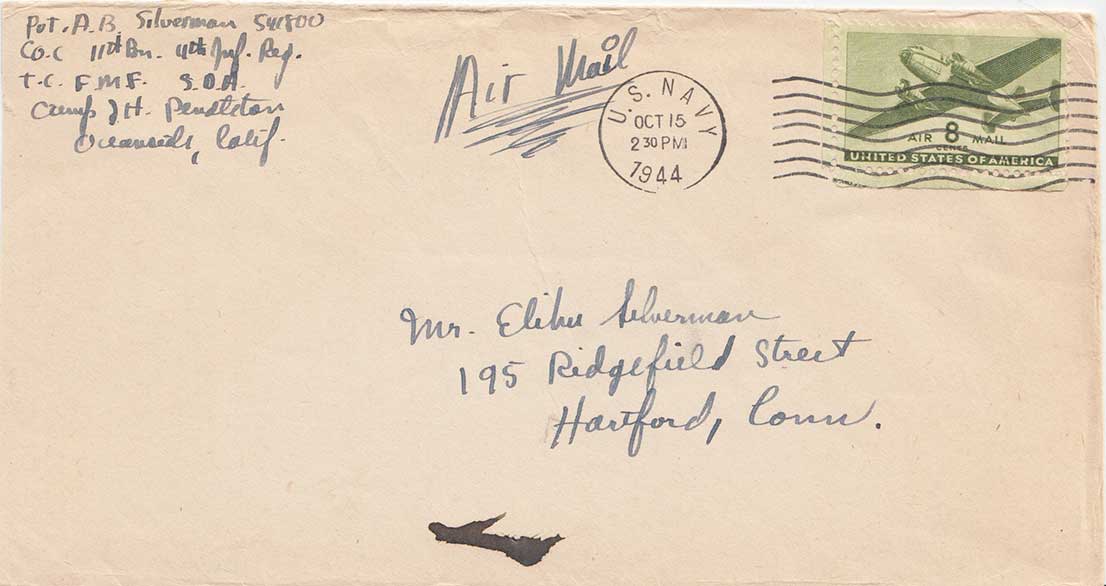 Pvt. A.B. Silverman 541800
Co. C 11th Bn. 4th Inf. Reg.
T.C. F.M.F. S.D.A.
Camp J.H. Pendleton
Oceanside, Calif.
Air Mail
U.S. NAVY
OCT 15
2 30 PM
1944
AIR 8 MAIL
CENTS
UNITED STATES OF AMERICA
Mr. Elihu Silverman
195 Ridgefield Street
Hartford, Conn.